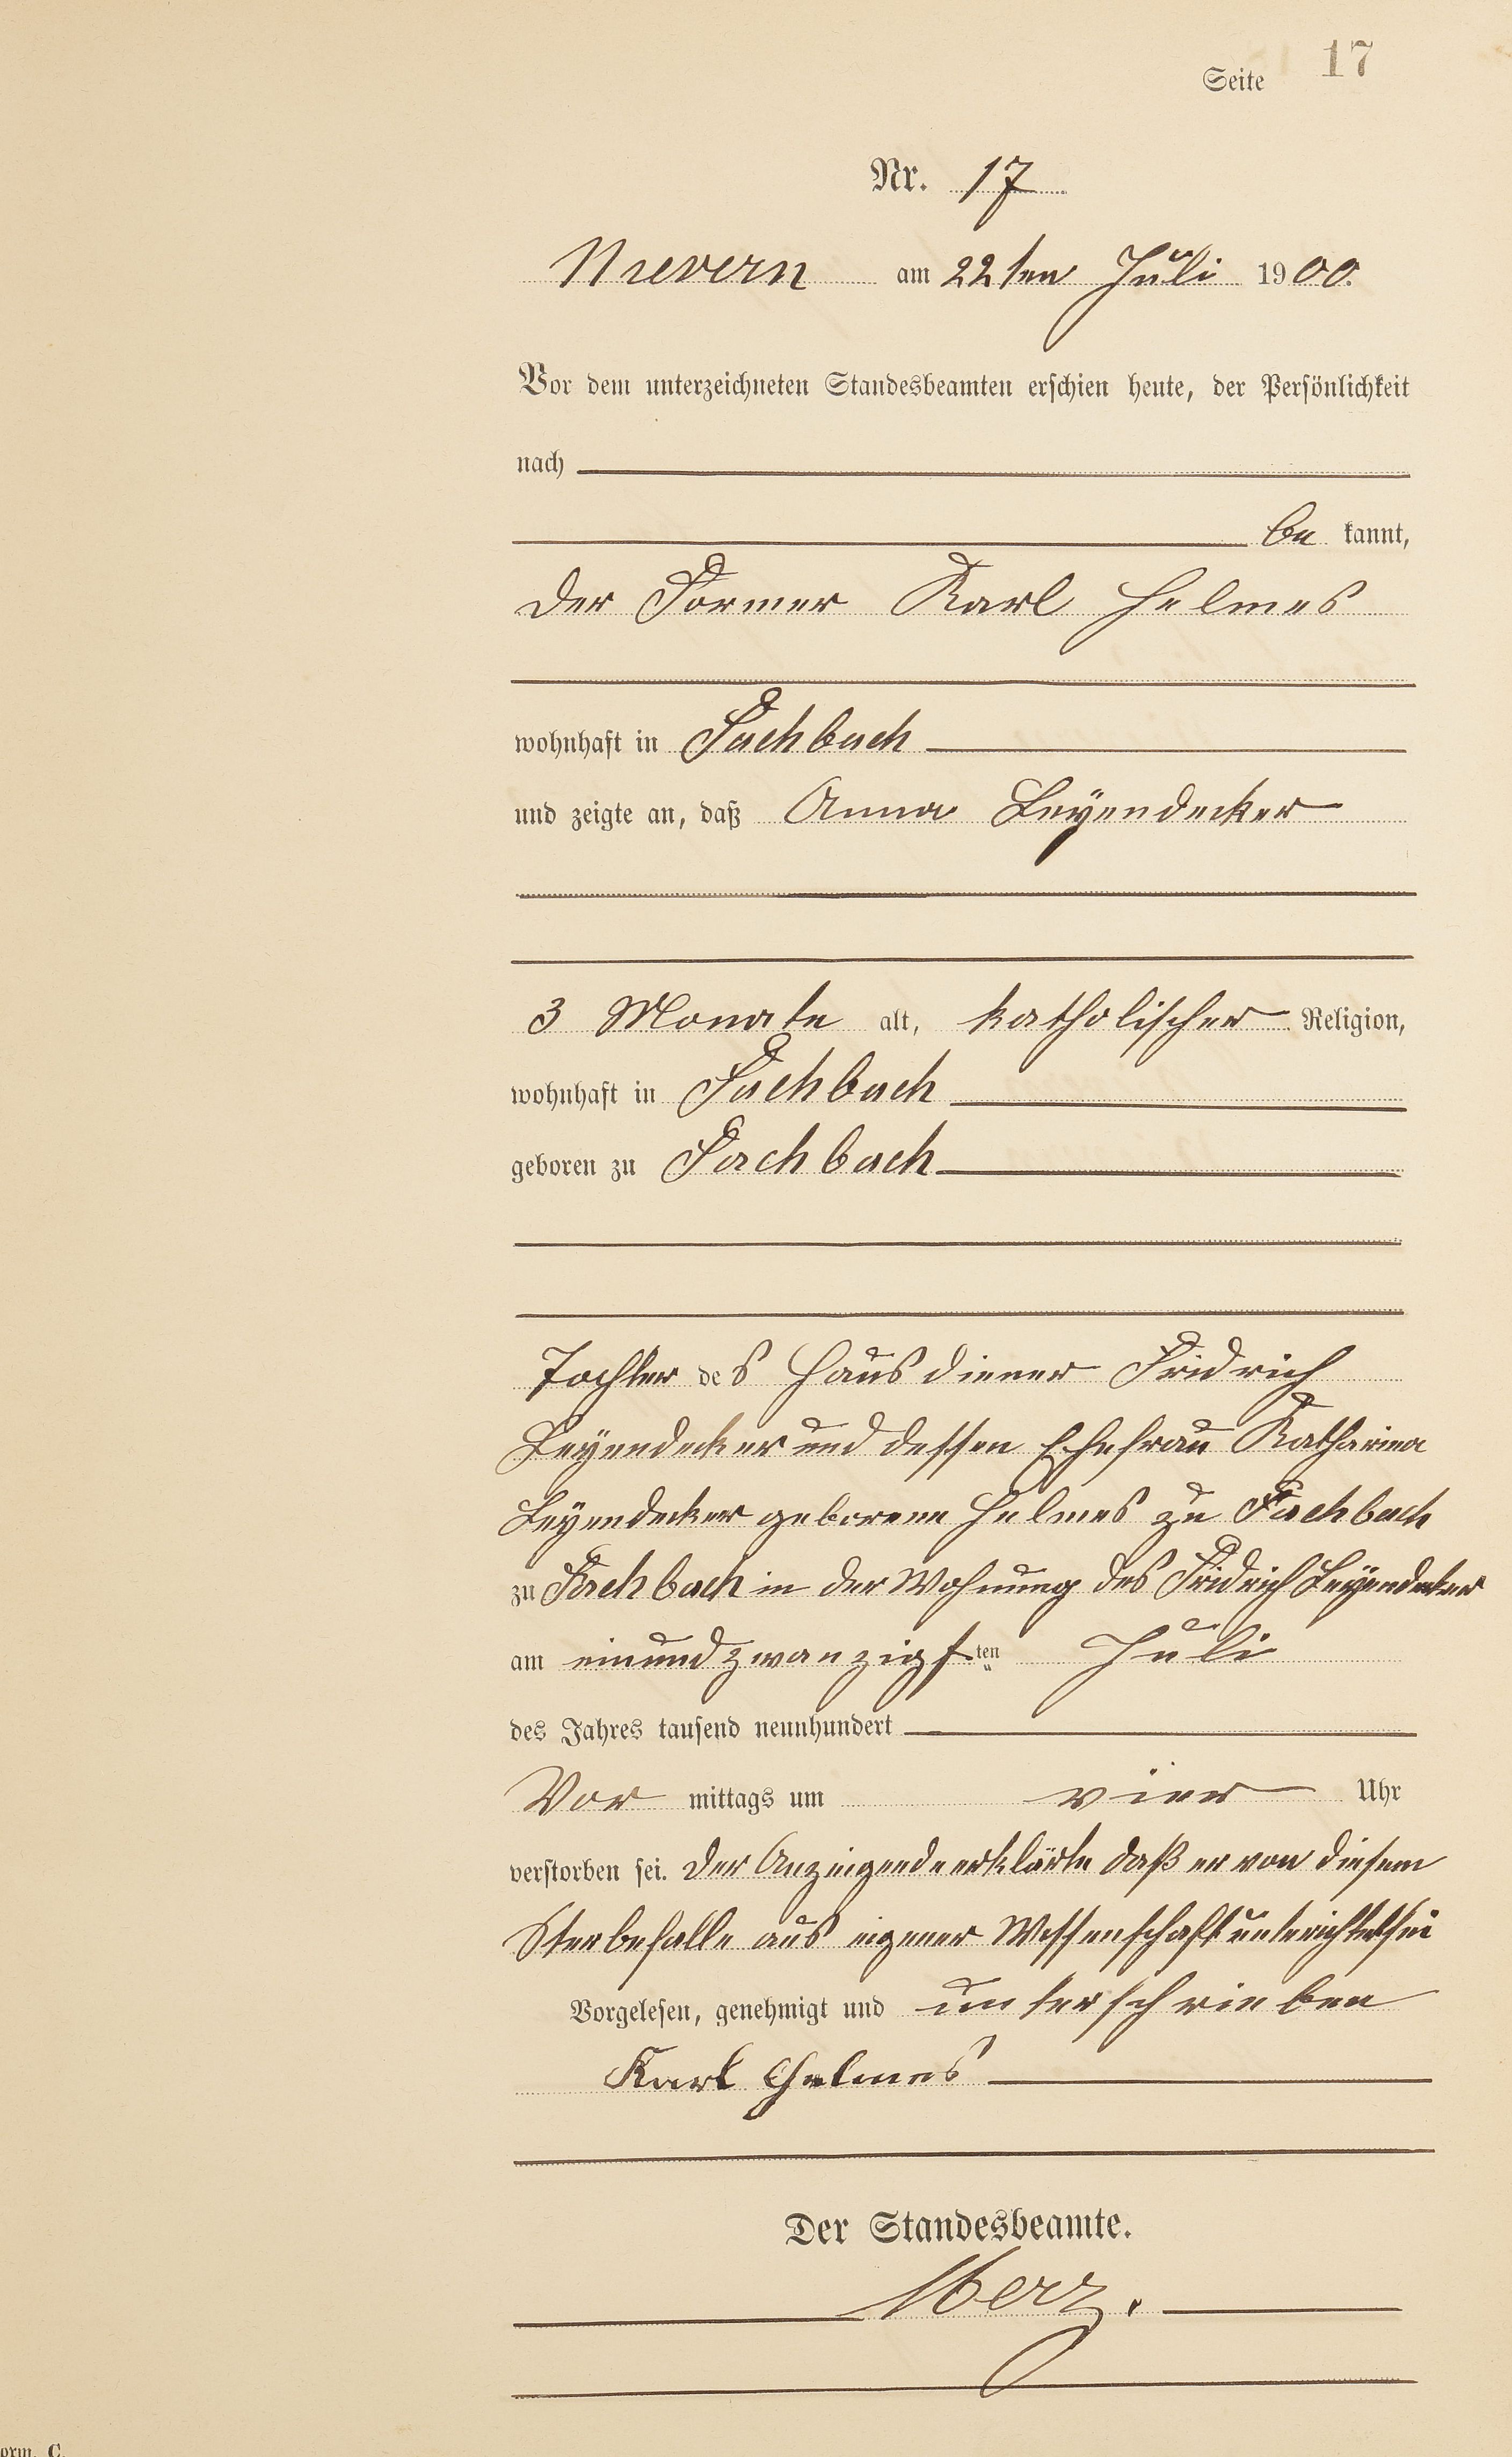 Seite 17
Nr. 17
Nievern am 22ten Juli 1900.
Vor dem unterzeichneten Standesbeamten erschien heute, der Persönlichkeit
nach
be kannt,
der Former Karl Helmes
wohnhaft in Fachbach
und zeigte an, daß Anna Leyendecker
3 Monate alt, katholischer Religion,
wohnhaft in Fachbach
geboren zu Fachbach
Tochter des Hausdiener Fridrich
Leyendecker und dessen Ehefrau Katharina
Leyendecker geborene Helmes zu Fachbach
zu Fachbach in der Wohnung des Fridrich Leyendecker
am einundzwanzigsten Juli
des Jahres tausend neunhundert
Vor mittags um vier Uhr
verstorben sei. Der Anzeigende erklärte daß er von diesem
Sterbefalle aus eigener Wissenschaft unterichtet sei
Vorgelesen, genehmigt und unterschrieben
Karl Helmes
Der Standesbeamte.
Merz.
orm. C.